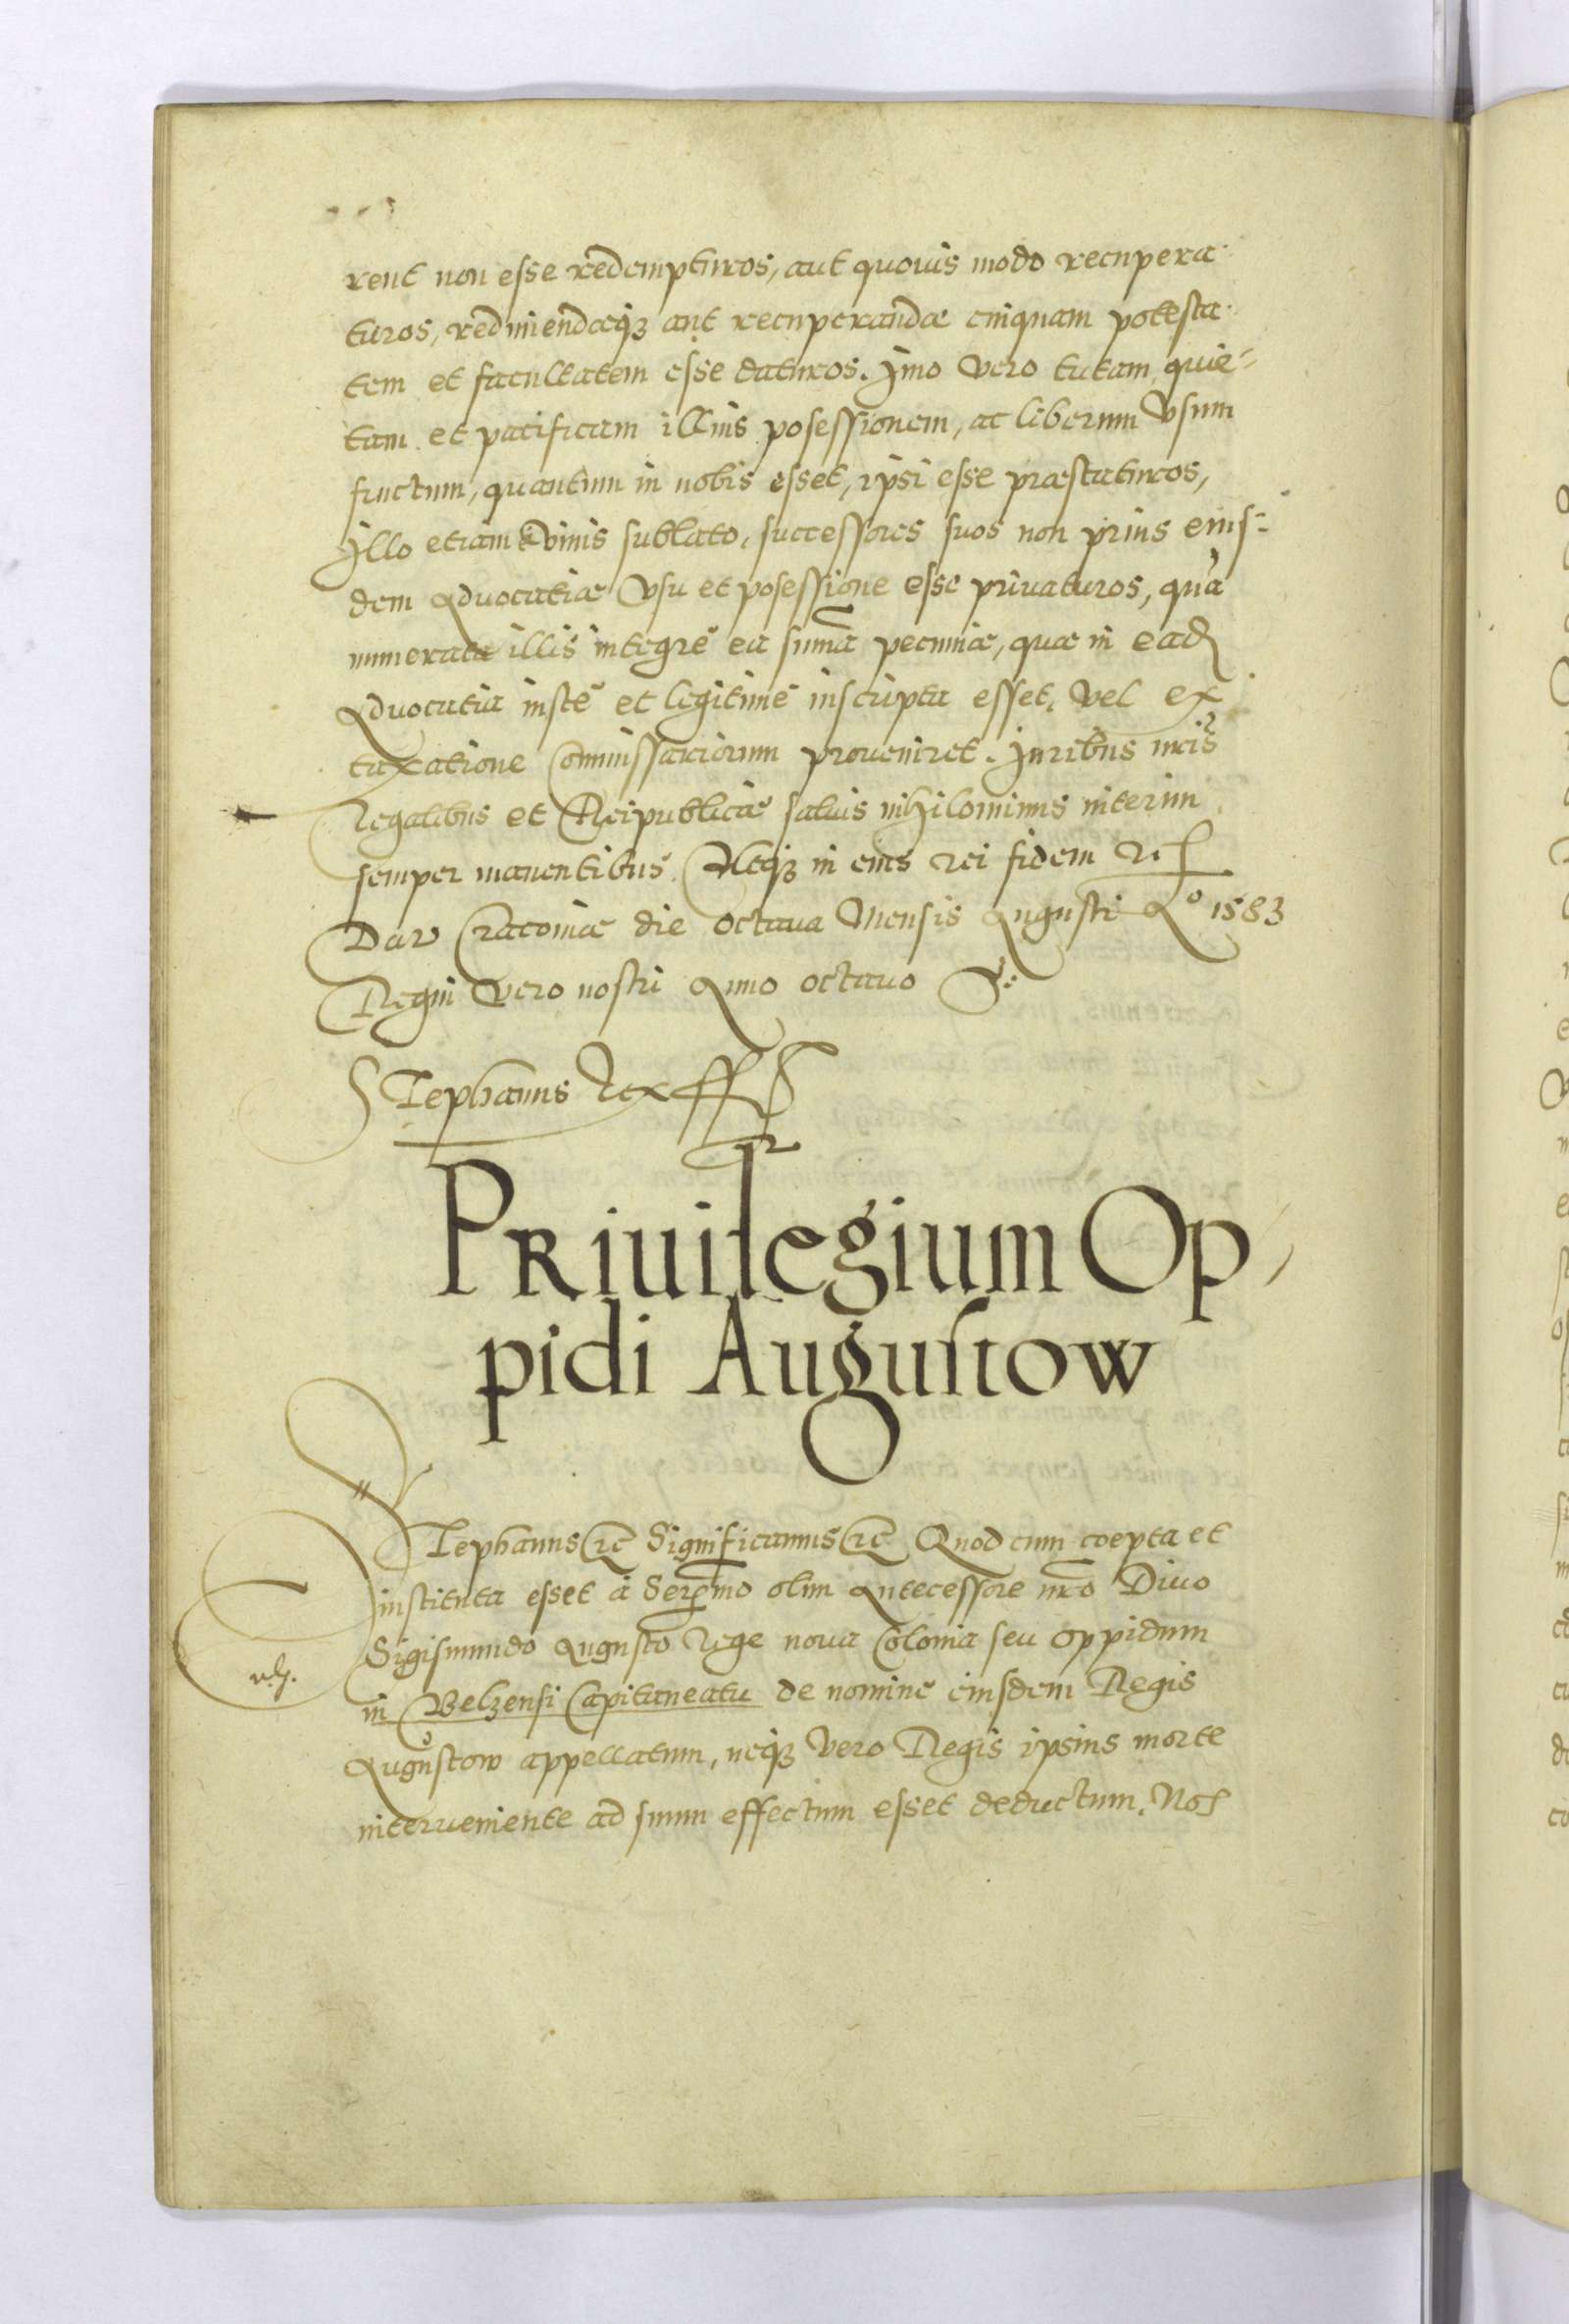 rent non esse redempturos, aut quouis modo recupera-
turos, redimendæq3 aut recuperandæ cuiquam potesta-
tem et facultatem esse daturos. Imo vero tutam, quie-
tam et pacificam illius posessionem, ac liberum vsum
fructum, quantum in nobis esset, ipsi esse præstaturos,
Illo etiam viuis sublato, successores suos non prius eius-
dem Aduocatiæ vsu et posessione esse priuaturos, quã
numerata illis integrè ea suma pecuniæ, quæ in ead
Aduocatia iustè et legitimè inscripta esset, vel ex
taxatione Commissariorum proueniret. Iuribus nris
Regalibus et Reipublicæ saluis nihilominus interim
semper manentibus. Atq3 in eius rei fidem rc
Dat Cracouiæ die octaua Mensis Augusti Aº 1583
Regni vero nostri Anno octauo
Stephanus Rex ssst
PRiuilegium Op-
pidi Augustow
Stephanus rc Significamus rc Quod cum coepta et
instituta esset à Sermo olim Antecessore nro Diuo
Sigismundo Augusto Rege noua Colonia seu oppidum
in Belzensi Capitaneatu de nomine eiusdem Regis
Augustow appellatum, neq3 vero Regis ipsius morte
interueniente ad suum effectum esset deductum. Nos